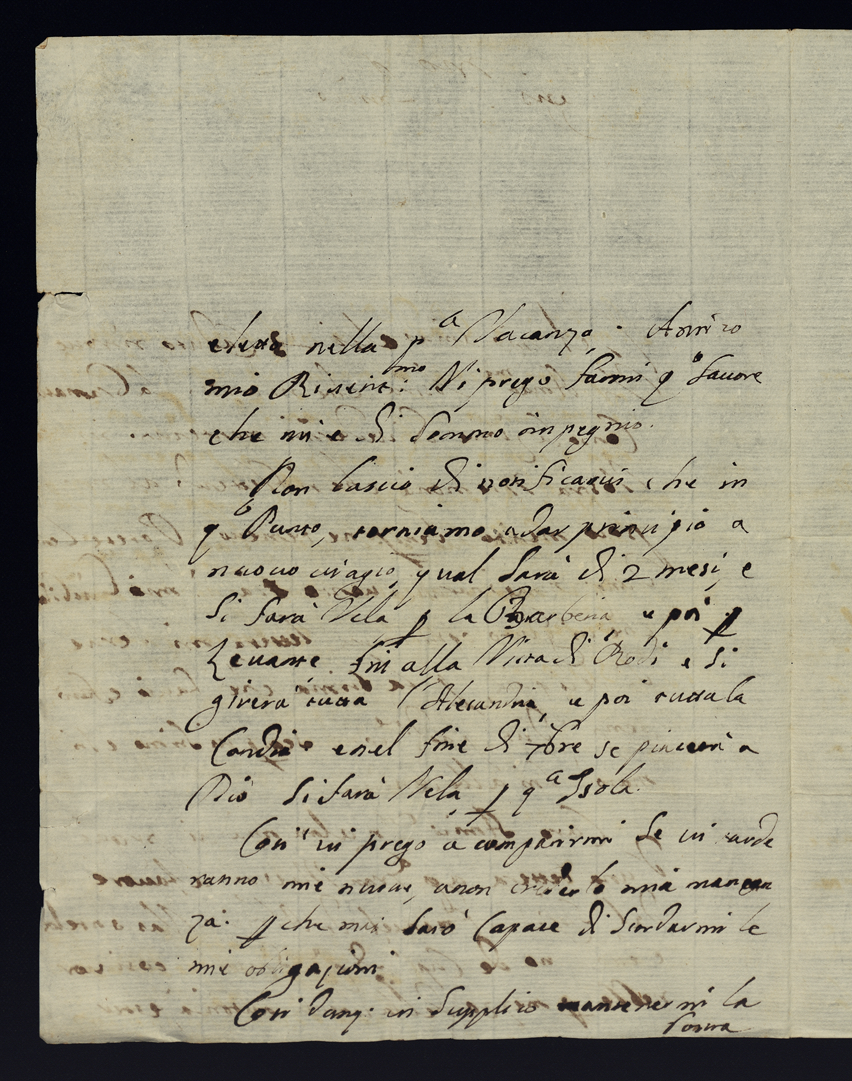 nella p.a Vacanza. Amico
mio Riverit.mo Vi prego farmi q.o favore
che mi è di sommo impegnio.
Non lascio di notificarvi che in
q.o Punto, torniamo a dar principio a
nuovo viagio, qual sarà di 2 mesi, e
si farà Vela p la Barberia e poi p
Levante fin alla Vista di Rodi e si
girerà tutta l'Alesandria, e poi tutta la
Candia e nel fine di 7bre se piacerà a
Dio si farà Vela p q.a Isola.
Così vi prego a compatirmi se vi tarde
ranno mie nuove, a non crederlo mia mancan
za: p che mai sarò Capace di scordarmi le
mie obligazioni
Così dunq. vi supplico mantenermi la
vostra